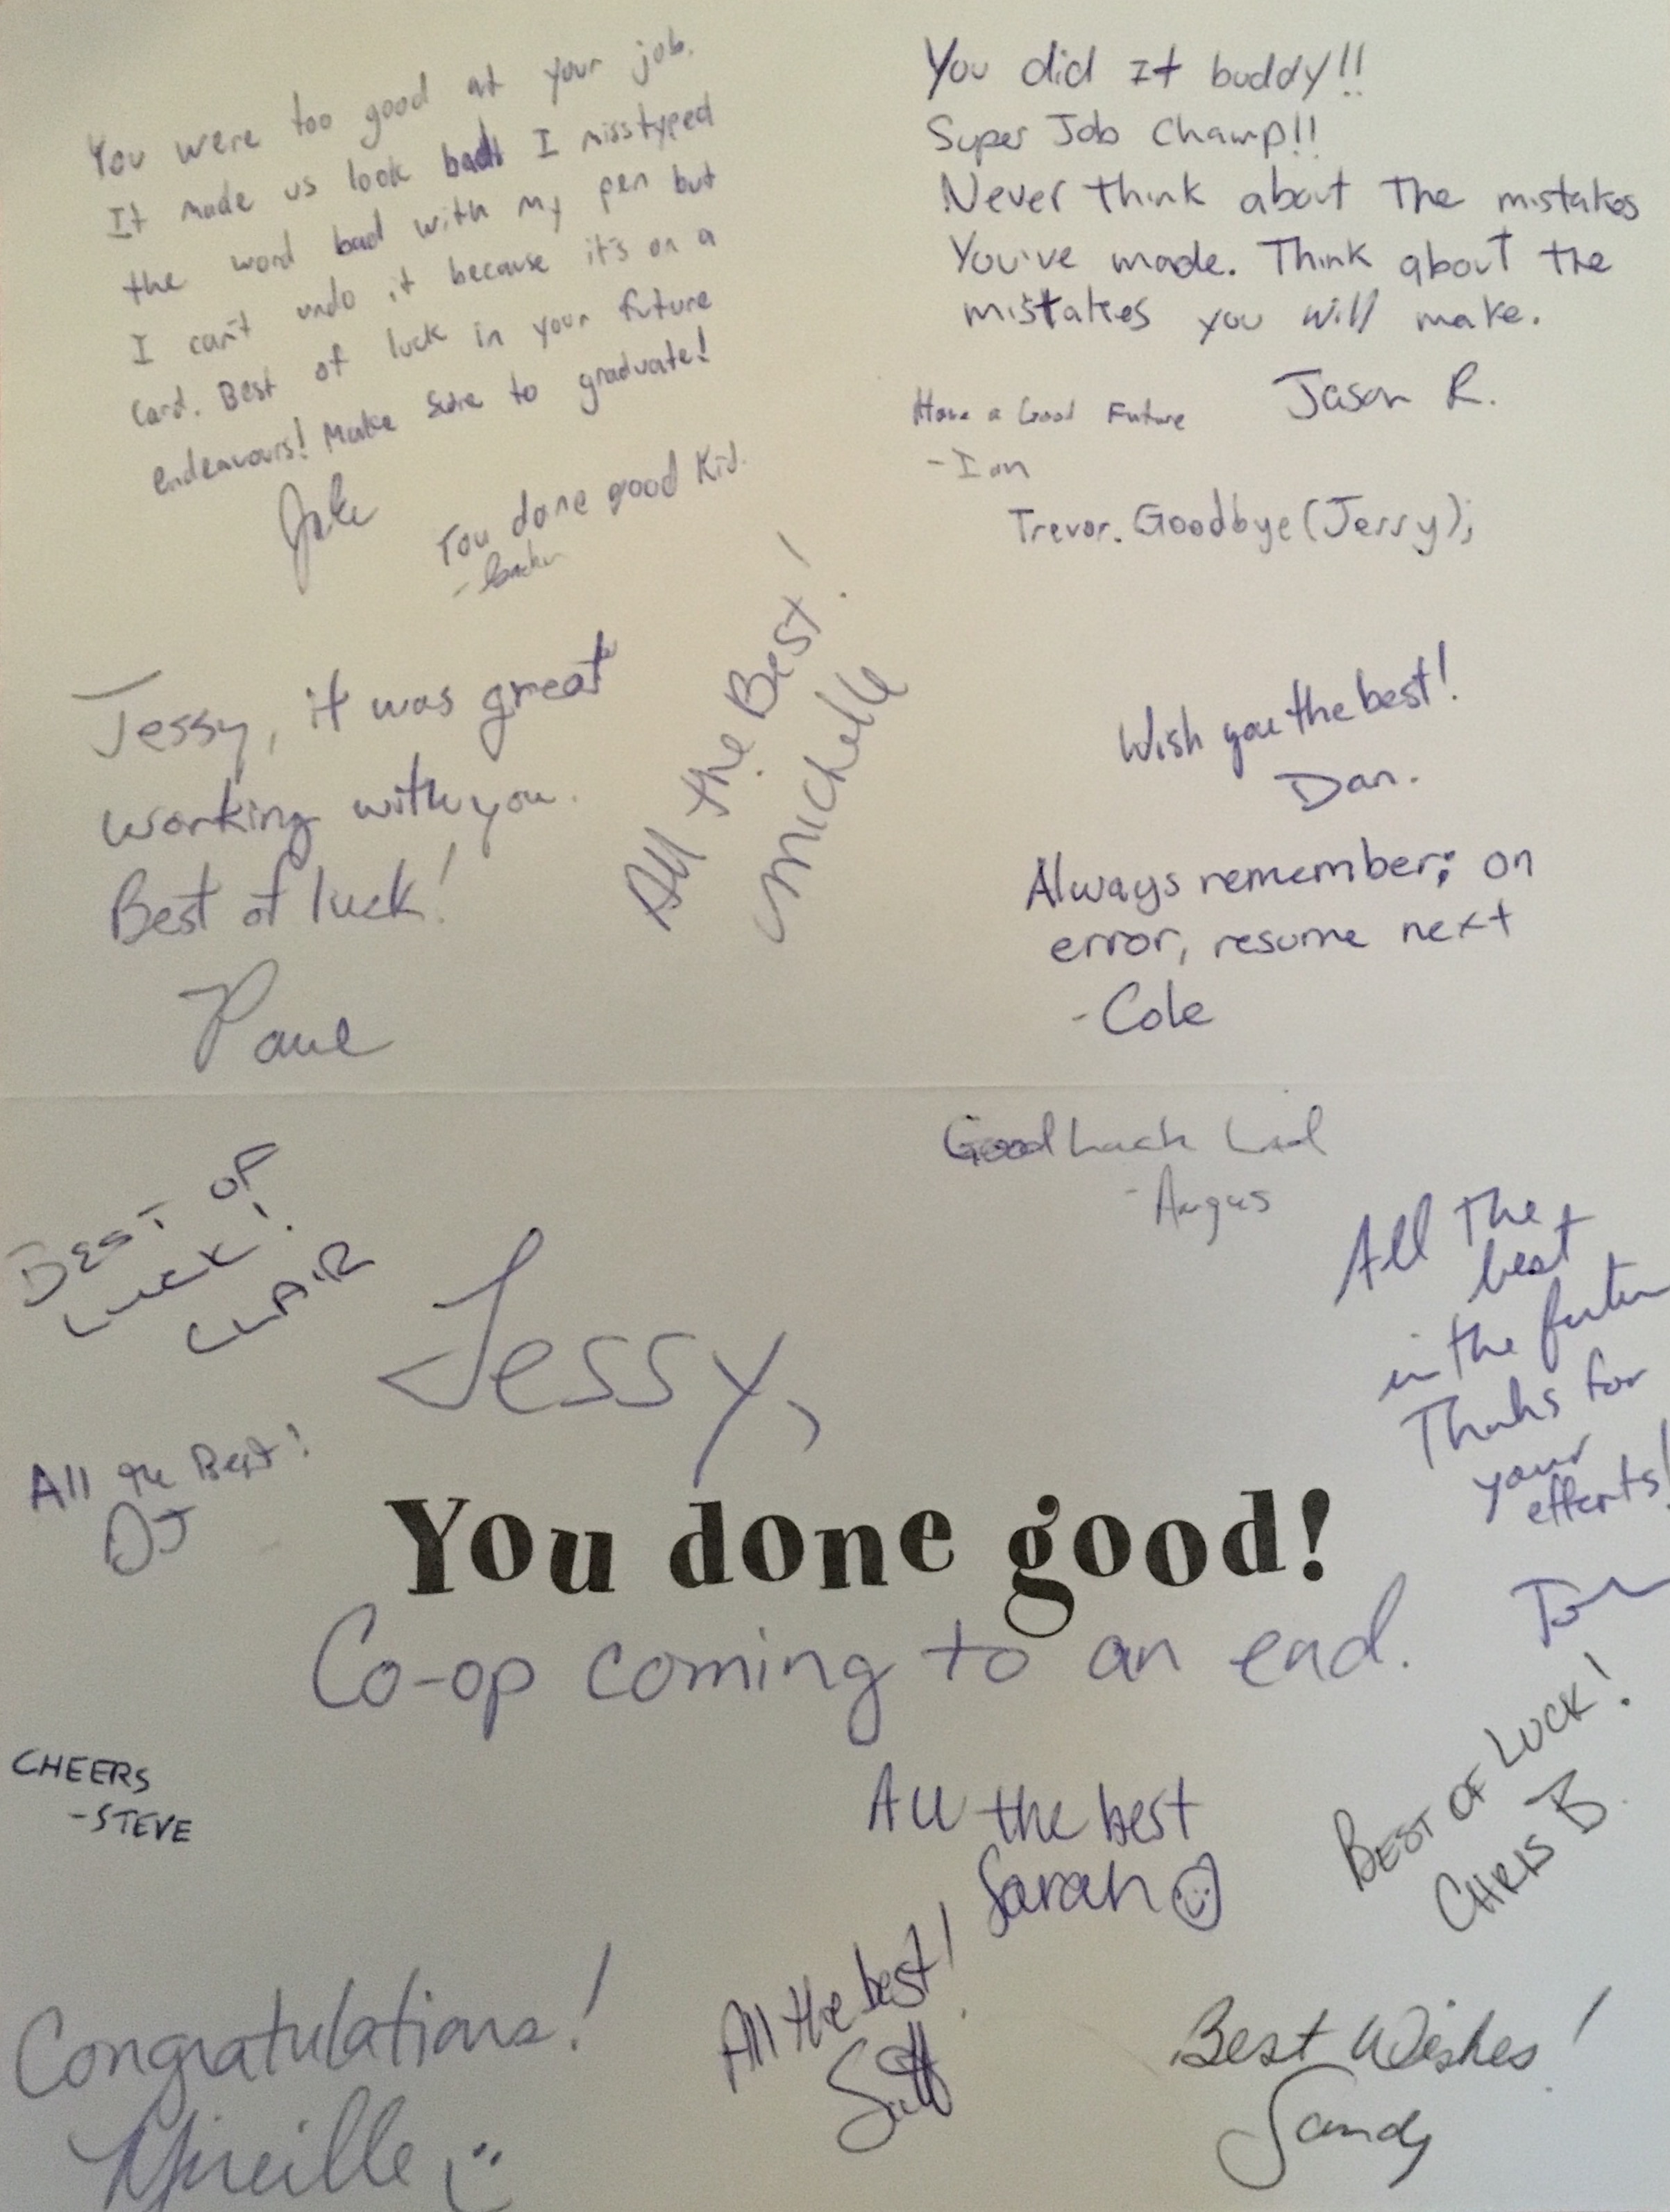 You were too good at your job.
It made us look bad I misstyped
the word bad with my pen but
I can't undo it because it's on a
Card. Best of luck in your future
endeavours! Make sure to graduate!
Jake
You done good Kid.
You did It buddy!!
Super Job Champ!!
Never think about The mistakes
You've made. Think about the
mistakes you will make.
Jason R.
Have a Good Future
- Ian
Trevor.Goodbye(Jerry);
Jessy, it was great
working with you.
Best of luck!
Paul
All the Best!
Michelle
Wish you the best!
Dan.
Always remember; on
error, resume next
- Cole
Good Luck Lad
- Angus
BEST OF
LUCK!
CLAIR
All The
best
in the future
Thanks for
your
efforts!
Jessy,
All the Best!
DJ
You done good!
Co-op coming to an end.
CHEERS
- STEVE
All the best
Sarah
BEST OF LUCK!
CHRIS B.
Congratulations!
Mireille
All the best!
Best Wishes!
Sandy